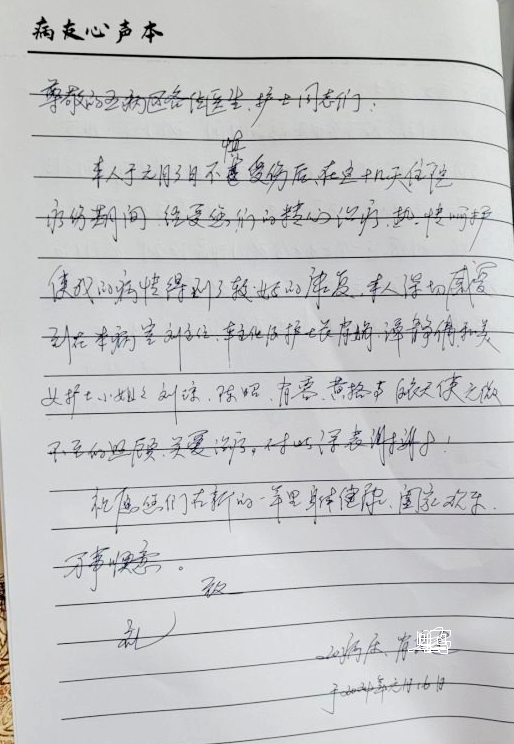 病友心声本
尊敬的五病区各位医生、护士同志们:
本人于元月3日不慎受伤后、在这十几天住院
疗伤期间、经受您们的精心治疗、热情呵护
使我的病情得到了较好的康复、本人深切感受
到在本病室刘主任、车主任及护士长肖娟、谭静倩和美
女护士小姐:刘琼、陈昭、肖蓉、黄格等白衣天使无微
不至的照顾、关爱治疗,在此深表谢谢!
祝愿您们在新的一年里身体健康、阖家欢乐、
万事顺意。
致
礼
20病床、肖
于2024年元月16日